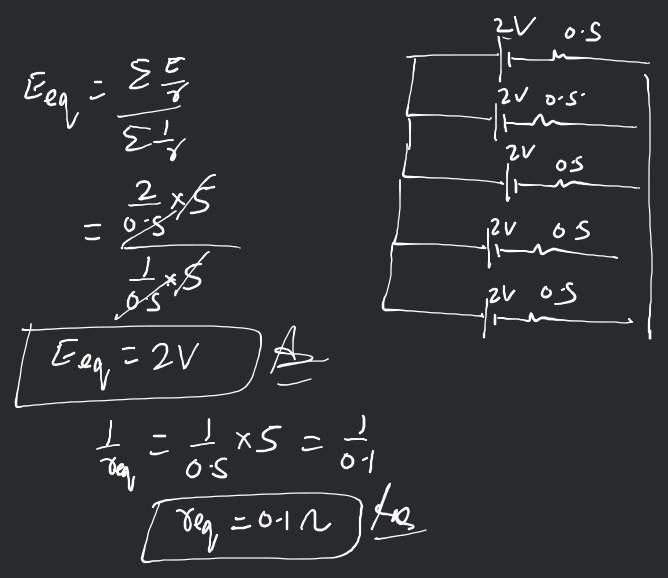 E_eq = Σ E/r / Σ 1/r
= 2/0.5 × 5 / 1/0.5 × 5
E_eq = 2V
1/r_eq = 1/0.5 × 5 = 1/0.1
r_eq = 0.1 Ω
2V 0.5
2V 0.5
2V 0.5
2V 0.5
2V 0.5